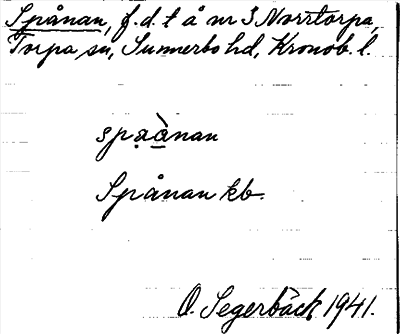 Spånan, f.d. t å nr 3 Norrtorpa,
Torpa sn, Sunnerbo hd, Kronob. l.
spa̤ànan
Spånan kb.
O. Segerbäck 1941.